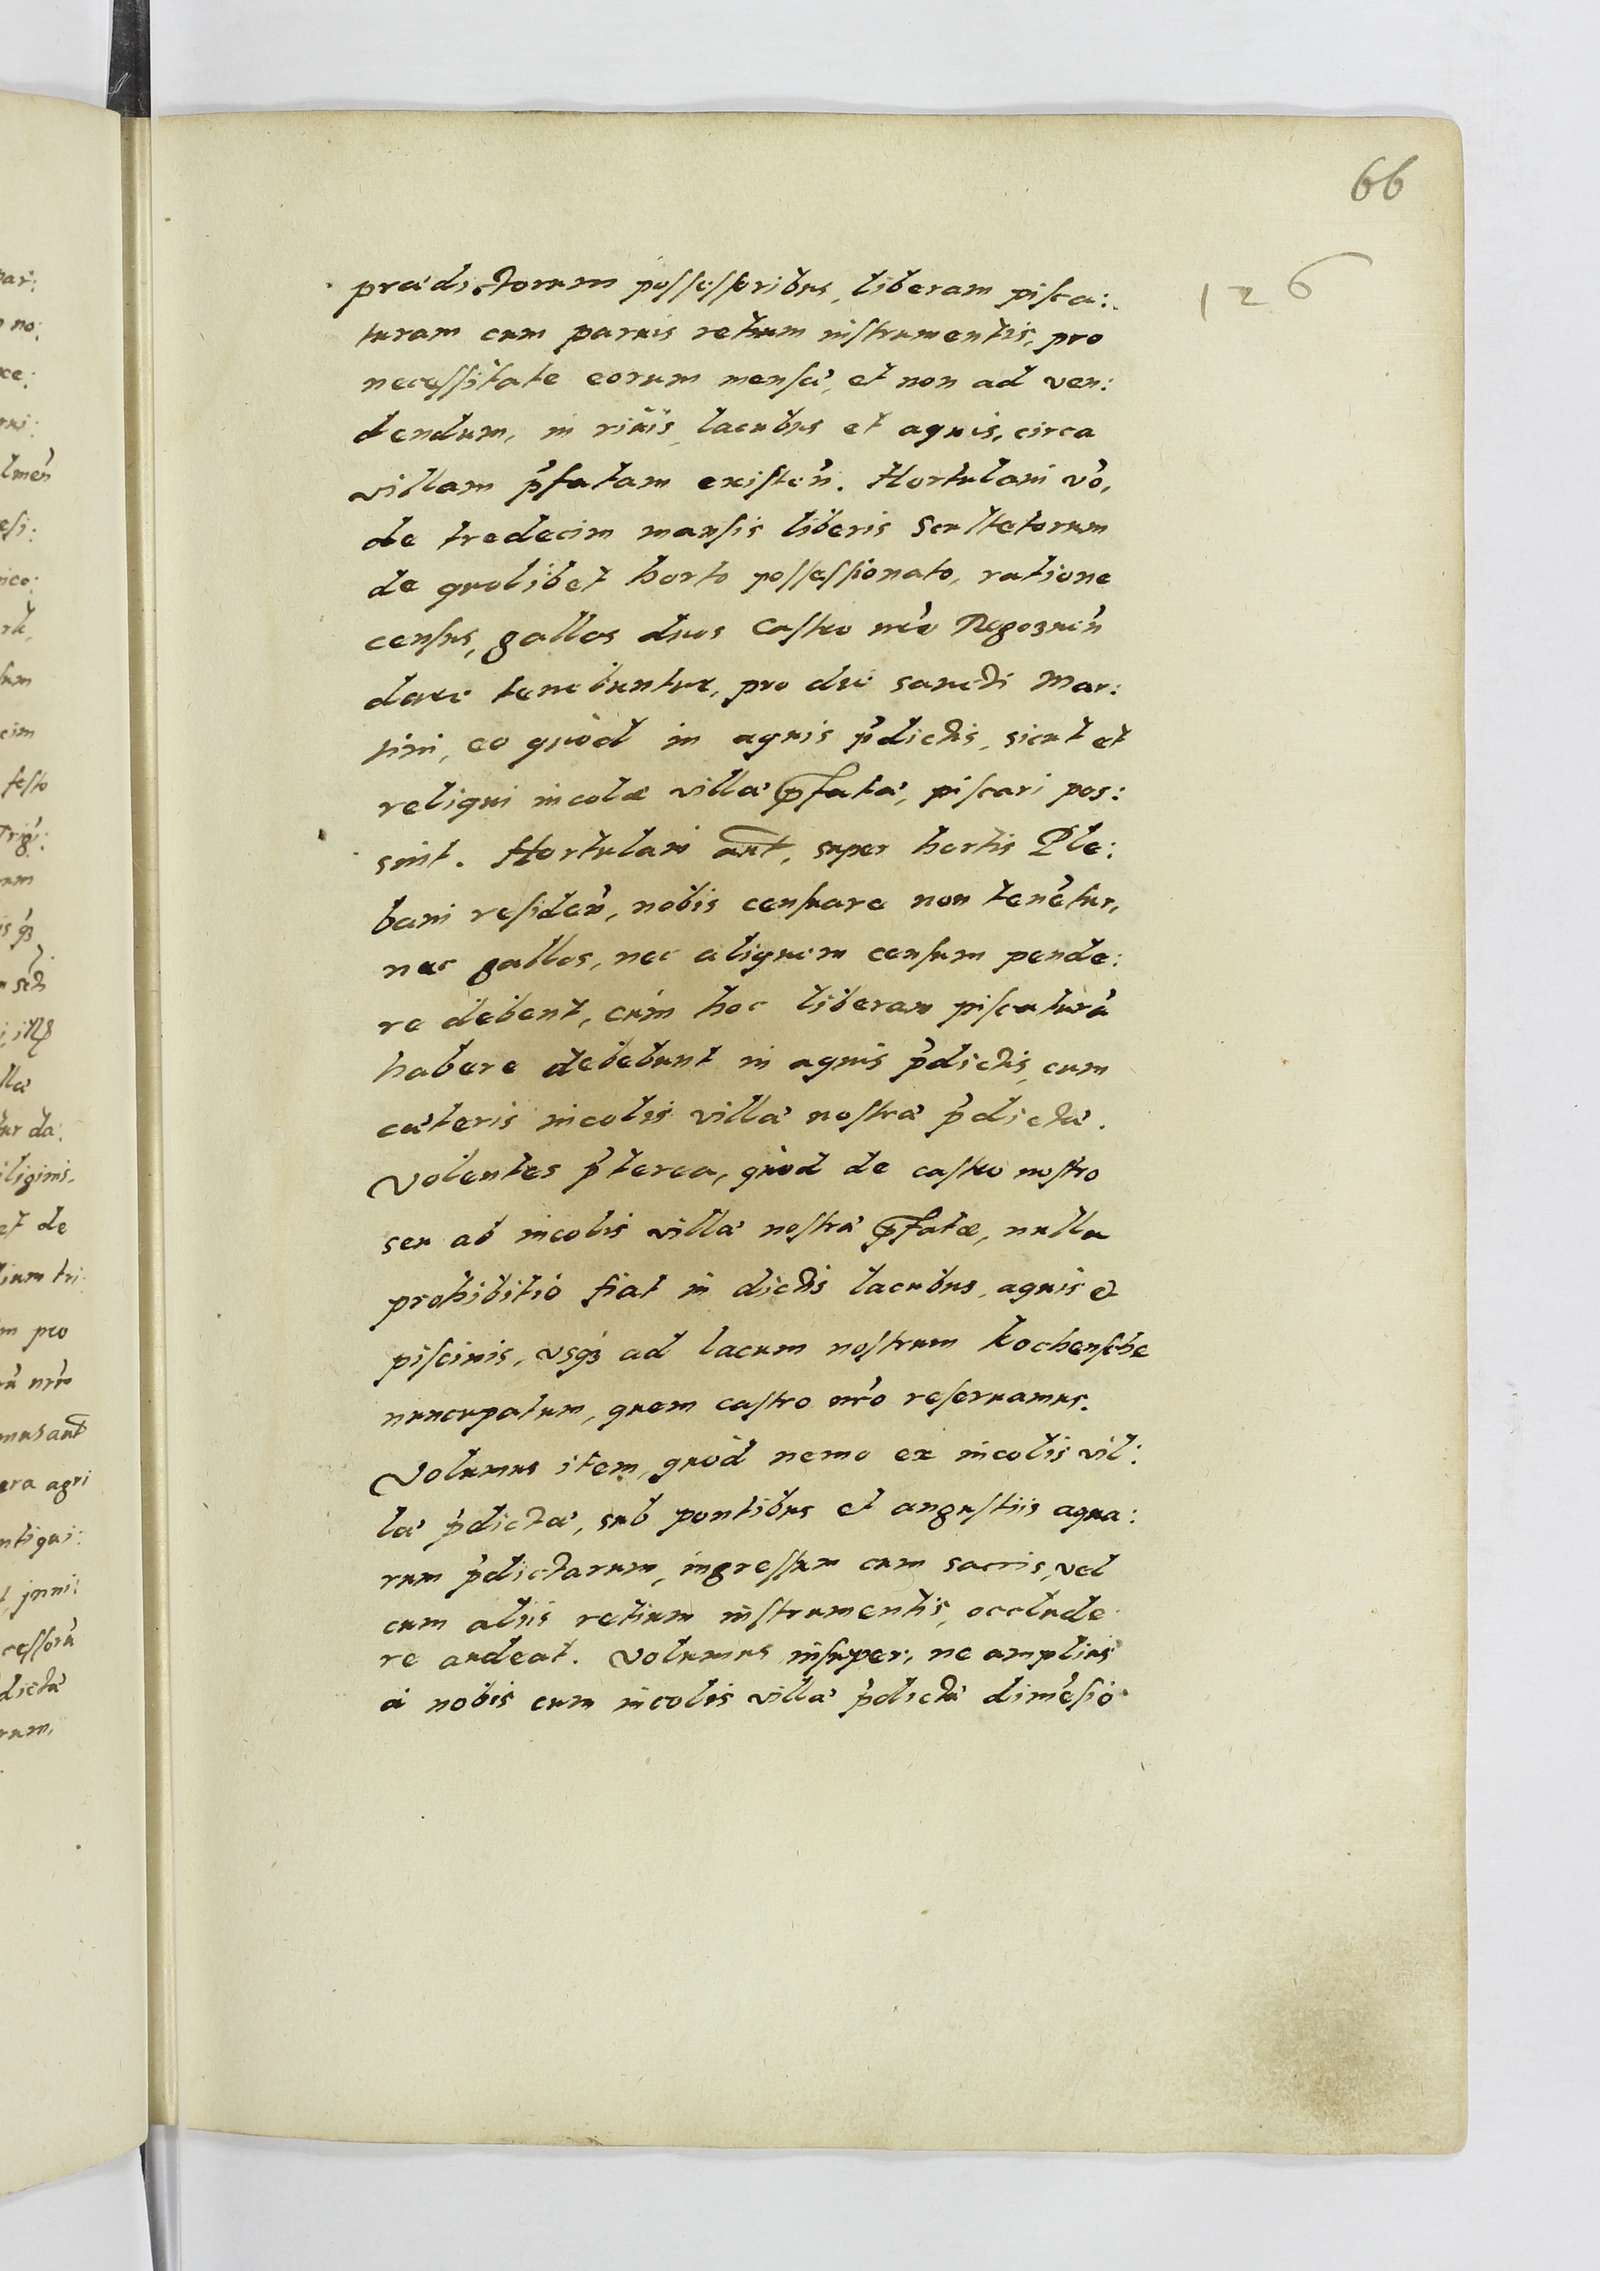 66
126
prædictorum possessoribus, liberam pisca:
turam cum paruis retium instrumentis, pro
necessitate eorum mensæ, et non ad ven:
dendum, in riuis, lacubus et aquis, circa
villam p̄fatam existeñ. Hortulani vo,
de tredecim mansis liberis Scultetorum
de quolibet horto possessionato, ratione
census, gallos duos Castro nr̄o Rogoznen̄
dare tenebuntur, pro die sancti Mar:
tini, eo quòd in aquis p̄dictis, sicut et
reliqui incolæ villæ p̄fatæ, piscari pos:
sint. Hortulani aut̄, super hortis Ple:
bani residen̄, nobis censuare non tenētur,
nec gallos, nec aliquem censum pende:
re debent, cum hoc liberam piscaturā
habere debebunt in aquis p̄dictis, cum
cæteris incolis villæ nostræ p̄dictæ.
Volentes p̄terea, quod de castro nostro
seu ab incolis villæ nostræ p̄fatæ, nulla
prohibitio fiat in dictis lacubus, aquis et
piscinis, vsqꝫ ad lacum nostrum Kochensche
nuncupatum, quem castro nr̄o reseruamus.
Volumus item, quòd nemo ex incolis vil:
læ p̄dictæ, sub pontibus et angustiis aqua:
rum p̄dictarum, ingressum cum saccis, vel
cum aliis retium instrumentis, occlude
re audeat. Volumus insuper, ne amplius
à nobis cum incolis villæ p̄dictæ dimēsio